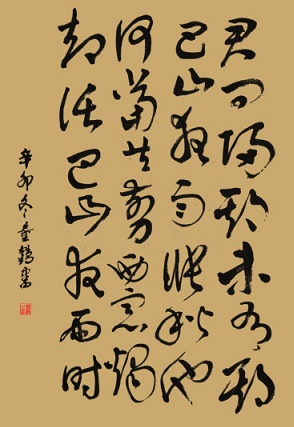 君问归期未有期
巴山夜雨涨秋池
何当共剪西窗烛
却话巴山夜雨时
辛卯冬